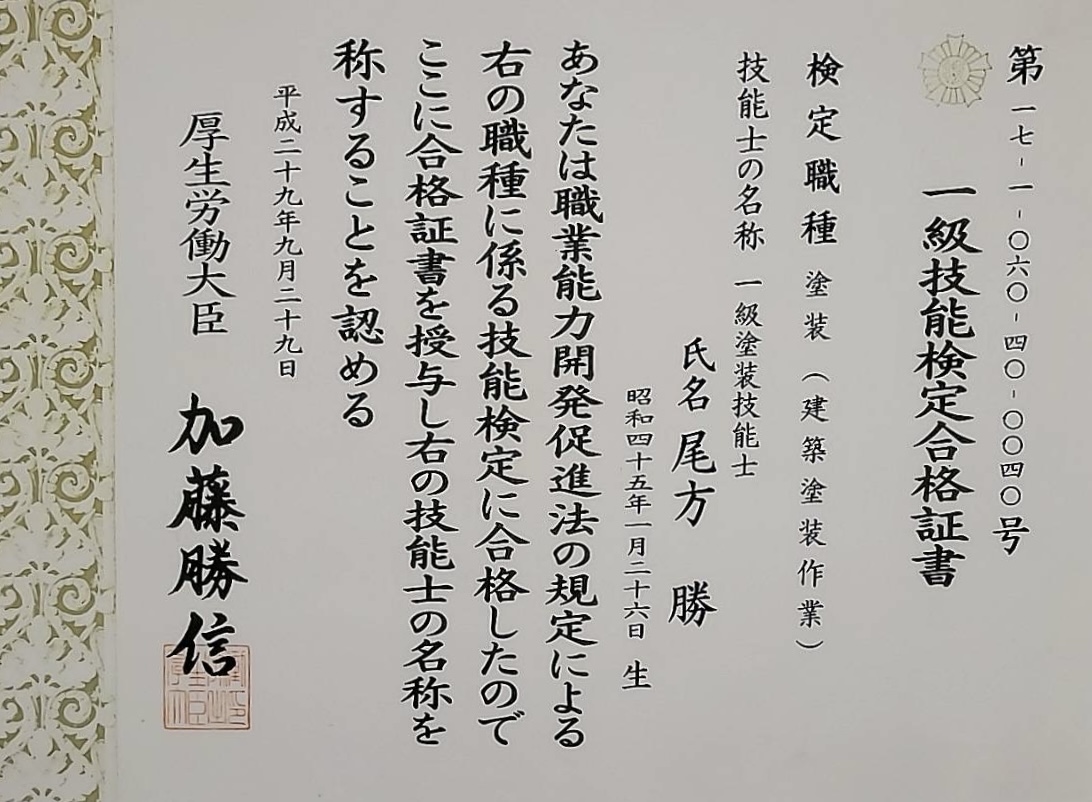 第一七-一-〇六〇-四〇-〇〇四〇号
一級技能検定合格証書
検定職種 塗装（建築塗装作業）
技能士の名称 一級塗装技能士
氏名 尾方 勝
昭和四十五年一月二十六日 生
あなたは職業能力開発促進法の規定による
右の職種に係る技能検定に合格したので
ここに合格証書を授与し右の技能士の名称を
称することを認める
平成二十九年九月二十九日
厚生労働大臣 加藤勝信